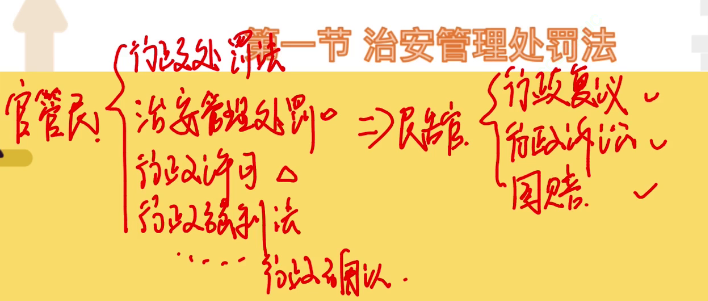 第一节 治安管理处罚法
官管民 行政处罚法
治安管理处罚。
行政许可 △
行政强制法
......
行政确认.
⇒民告官.
行政复议 ✓
行政诉讼 ✓
国赔. ✓